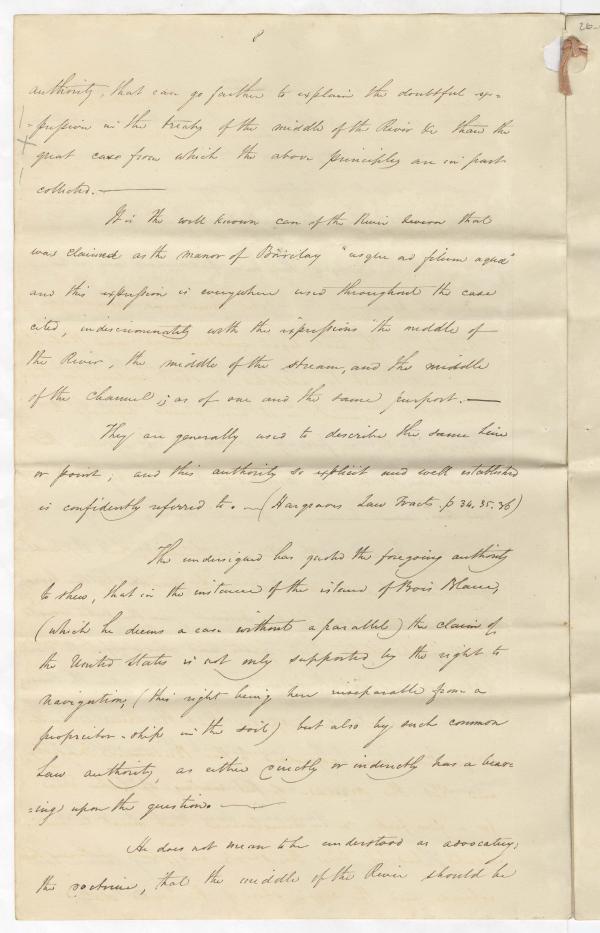 8
26-
authority, that can go farther to explain the doubtful ex-
-pression in the treaty of the middle of the River &c than the
great case from which the above principles are in part
collected. —
It is the well known case of the River Severn that
was claimed as the manor of "usque ad filum aquæ"
and this expression is everywhere used throughout the case
cited, indiscriminately with the expressions the middle of
the River, the middle of the stream, and the middle
of the channel, as of one and the same purport. —
They are generally used to describe the same line
or point; and this authority so explicit and well established
is confidently referred to. — (Hargraves Law Tracts p 34. 35. 36)
The undersigned has quoted the foregoing authority
to shew, that in the instance of the island of Bois Blanc,
(which he deems a case without a parallel) the claim of
the United States is not only supported by the right to
navigation, (this right being here inseparable from a
proprietor-ship in the soil) but also by such common
Law authority, as either directly or indirectly has a bear-
-ing upon the question. —
He does not mean to be understood as advocating
the doctrine, that the middle of the River should be